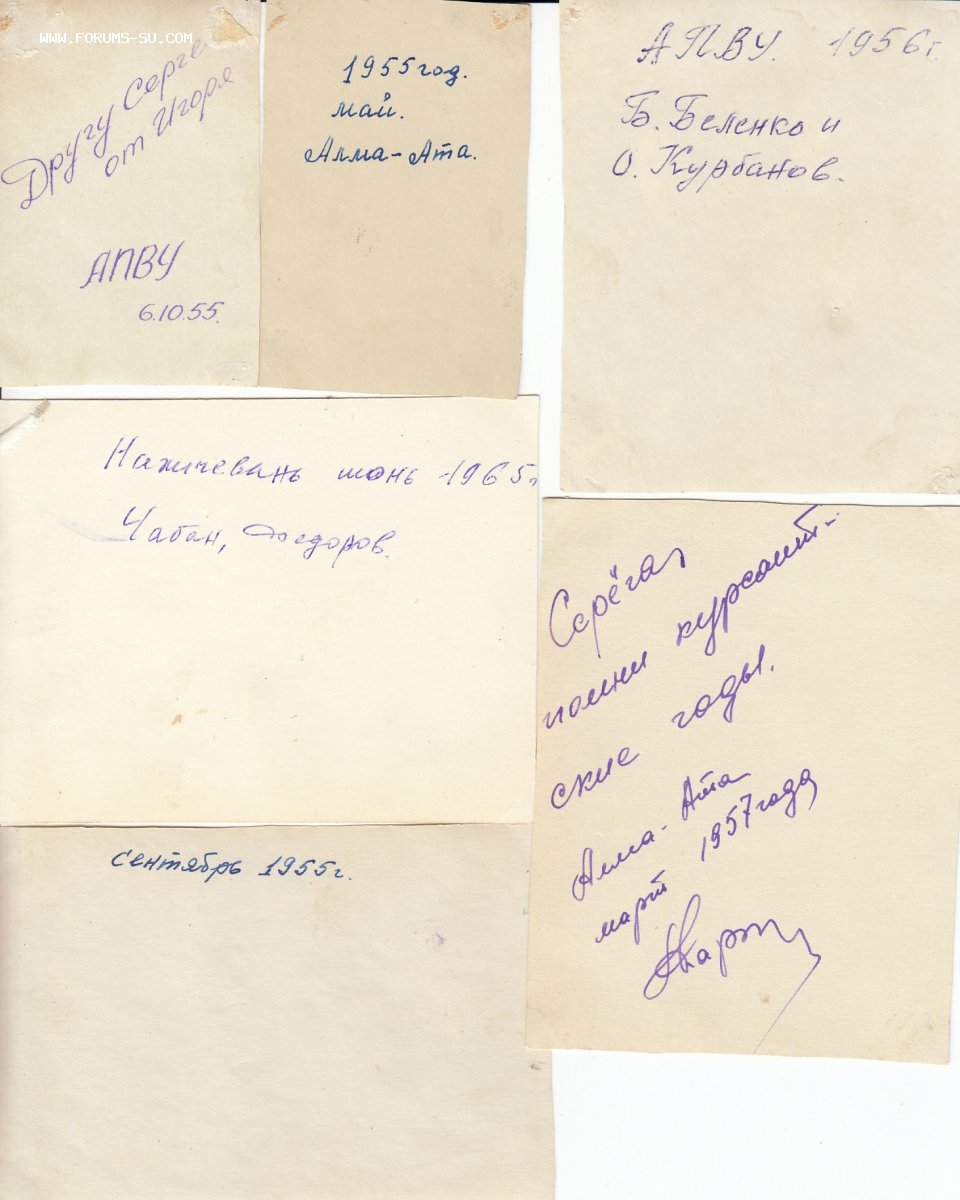 WWW.FORUMS-SU.COM
Другу Серге
от Игоря
АПВУ
6.10.55.
1955 год.
май.
Алма-Ата.
АПВУ. 1956 г.
Б. Беленко и
О. Курбанов.
Нахичевань июнь 1965 г
Чабан, Федоров.
Серёга,
помни курсант-
ские годы.
Алма-Ата
март 1957 года
сентябрь 1955 г.